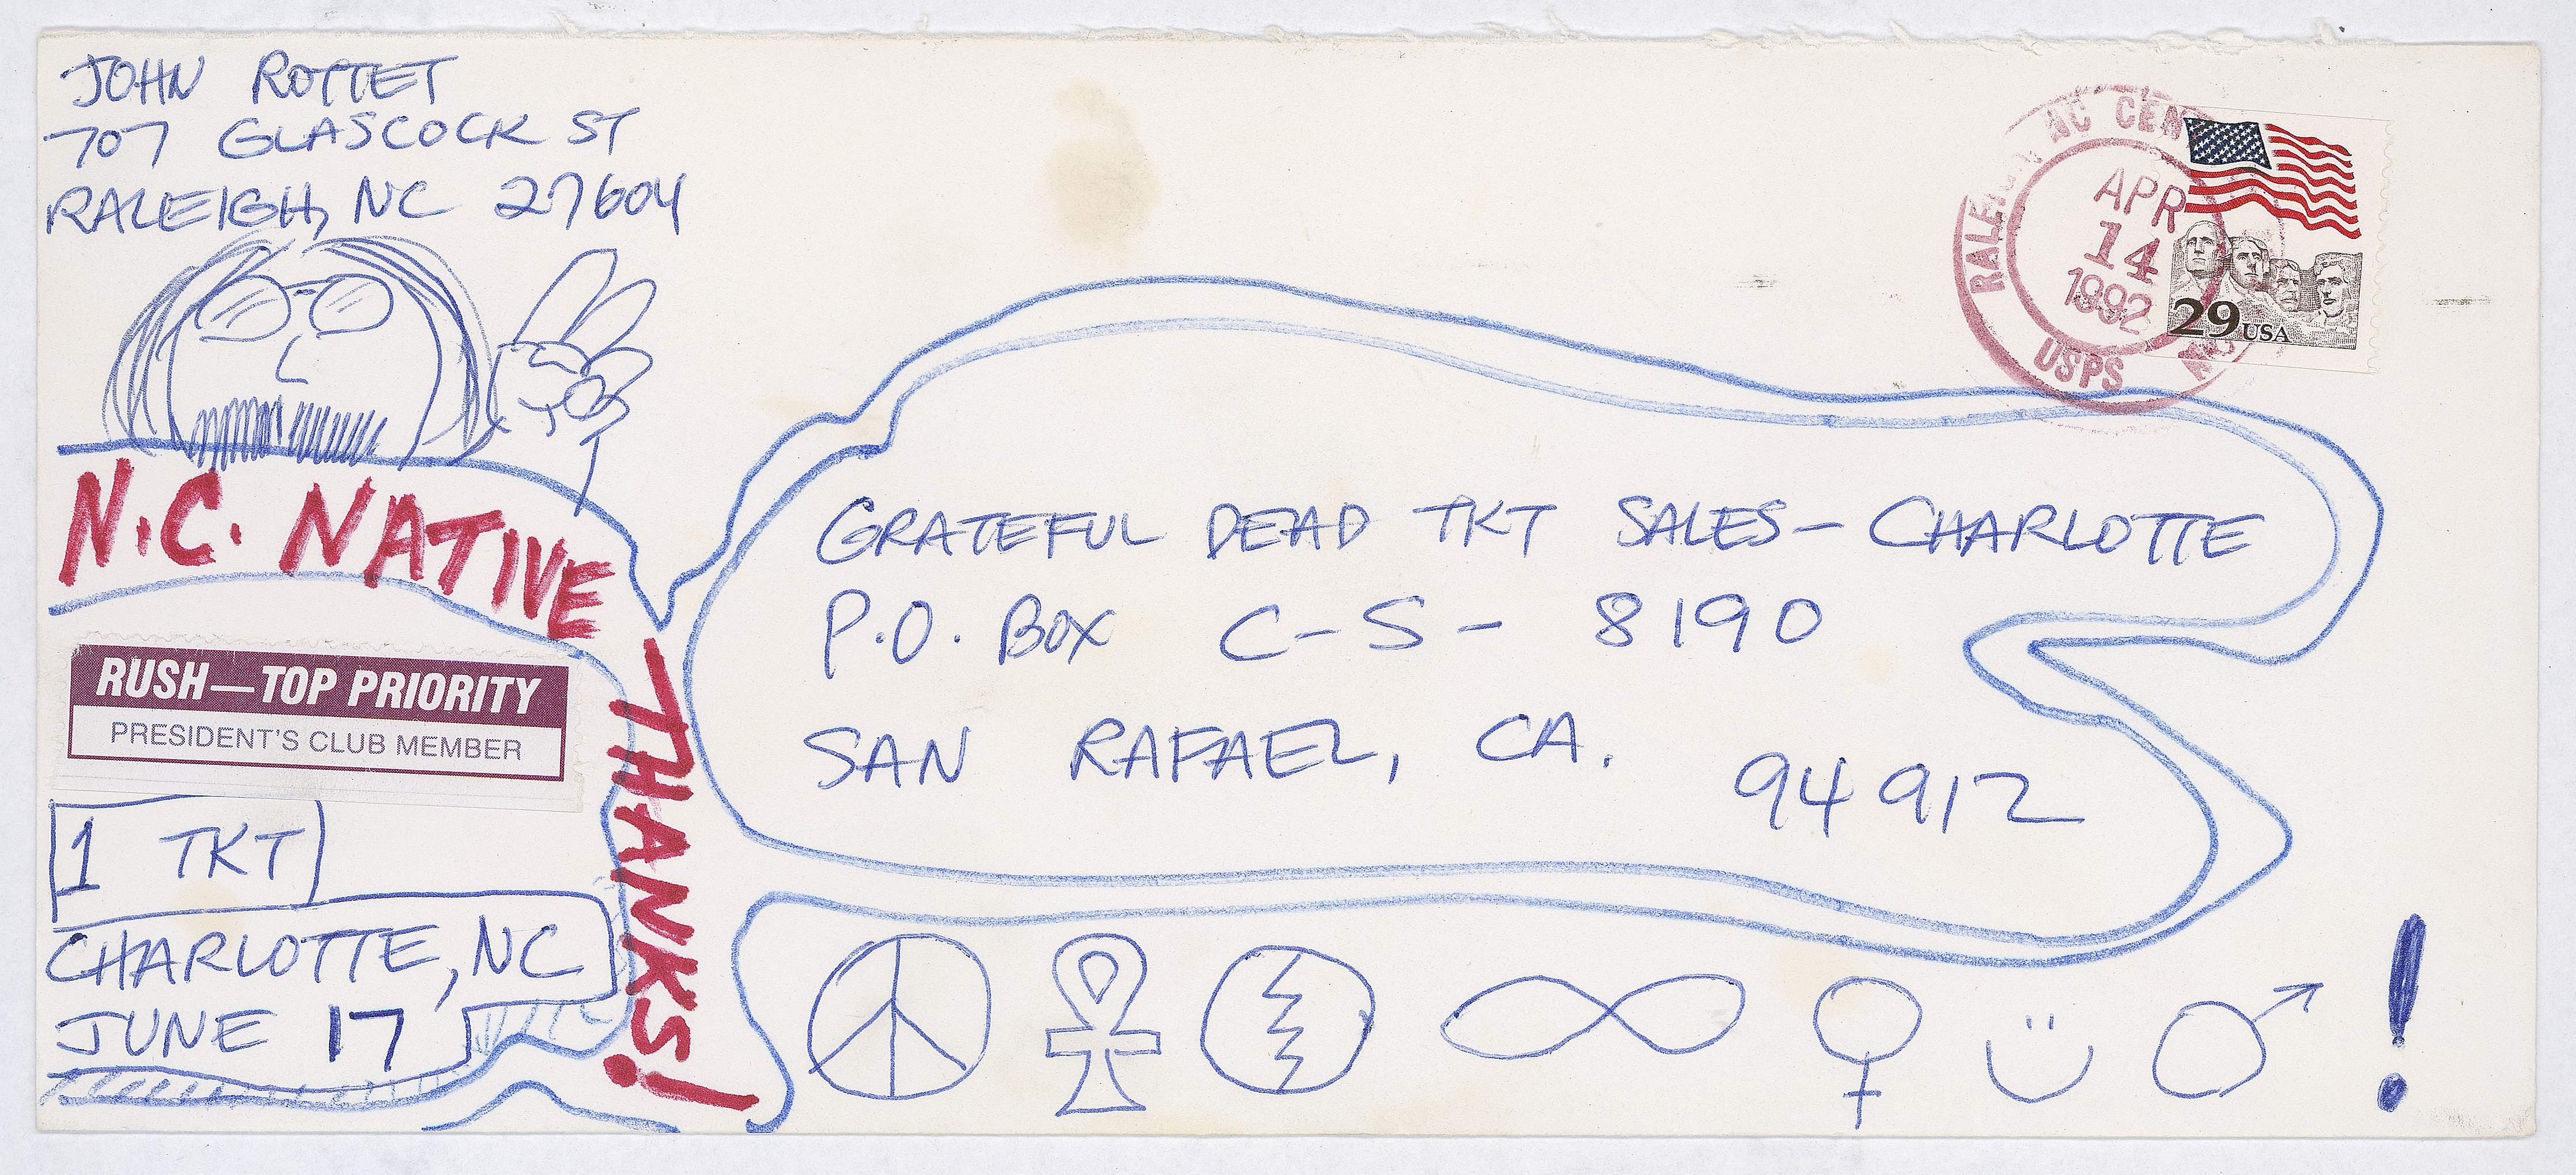 JOHN ROTTET
707 GLASCOCK ST
RALEIGH, NC 27604
N.C. NATIVE
THANKS!
RUSH—TOP PRIORITY
PRESIDENT'S CLUB MEMBER
1 TKT
CHARLOTTE, NC
JUNE 17
RALEIGH NC CEN
APR
14
1992
USPS
29 USA
GRATEFUL DEAD TKT SALES - CHARLOTTE
P.O. BOX C-S- 8190
SAN RAFAEL, CA. 94912
!